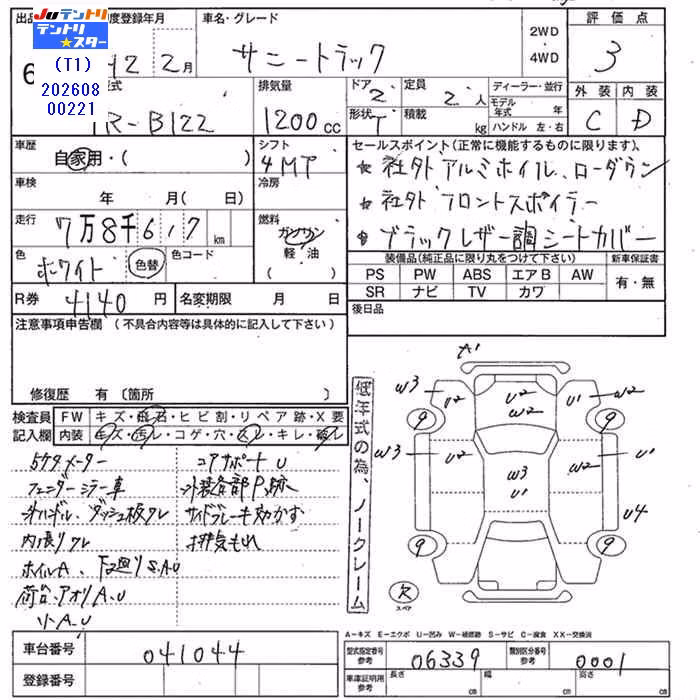 Juテントリ
テントリ★スター
(T1)
202608
00221
出品 度登録年月 車名・グレード 2WD・4WD 評価点
H2 2月 サニートラック 3
型式 排気量 ドア 定員 ディーラー・並行 外装 内装
R-B122 1200cc 2 2人 モデル年式 年 C D
形状 T 積載 kg ハンドル 左・右
車歴 自家用・( ) シフト 4MT
セールスポイント(正常に機能するものに限ります)。
☆社外アルミホイル、ローダウン
☆社外フロントスポイラー
☆ブラックレザー調シートカバー
車検 年 月(日) 冷房
走行 7万8千617km 燃料 ガソリン 軽油 ( )
色 ホワイト 色替 色コード
装備品(純正品に限り丸をつけて下さい) 新車保証書
PS PW ABS エアB AW 有・無
SR ナビ TV カワ
R券 4140円 名変期限 月 日
後日品
注意事項申告欄(不具合内容等は具体的に記入して下さい)
修復歴 有〔箇所 〕
検査員記入欄 FW キズ・飛石・ヒビ割・リペア跡・X要
内装 キズ・汚レ・コゲ・穴・スレ・キレ・破レ
5ケタメーター コアサポートU
フェンダーミラー車 外装各部P跡
ハンドル、ダッシュ板ワレ サイドブレーキ効かず
内張りワレ 排気もれ
ホイルA、下廻りS.A.U
荷台・アオリA.U
小A.U
低年式の為、ノークレーム
A1
W3 U2 U2 W2 U1 W2
9 9
W3 U2 W3 U1 W2 U1
U4
9 9
欠 スペア
A-キズ E-エクボ U-凹み W-補修跡 S-サビ C-腐食 XX-交換済
車台番号 041044
型式指定番号 参考 06339 類別区分番号 参考 0001
登録番号
車庫証明用 参考 長さ cm 幅 cm 高さ cm